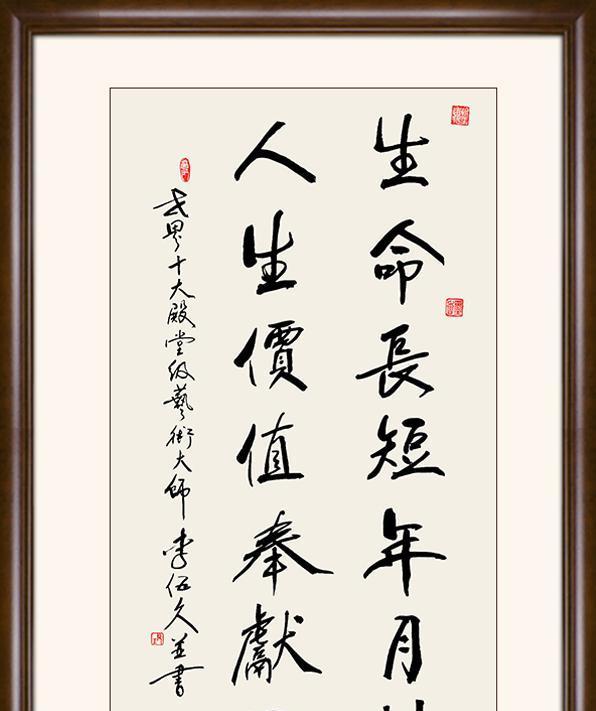 生命長短年月
人生價值奉獻
世界十大殿堂级藝術大師 李伍久並書